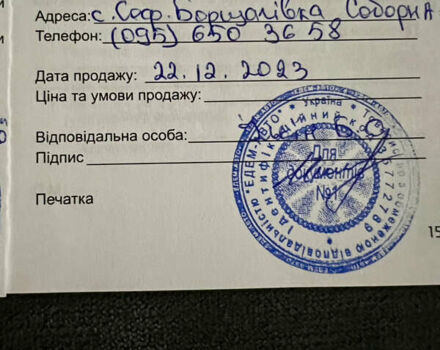 Адреса: с. Соф. Борщагівка Соборна
Телефон: (095) 650 36 58
Дата продажу: 22.12.2023
Ціна та умови продажу:
Відповідальна особа:
Підпис
Печатка
* Україна *
відповідальністю "ЕДЕМ-АВТО"
обмеженою
Ідентифікаційний код
Для
документів
№1
15